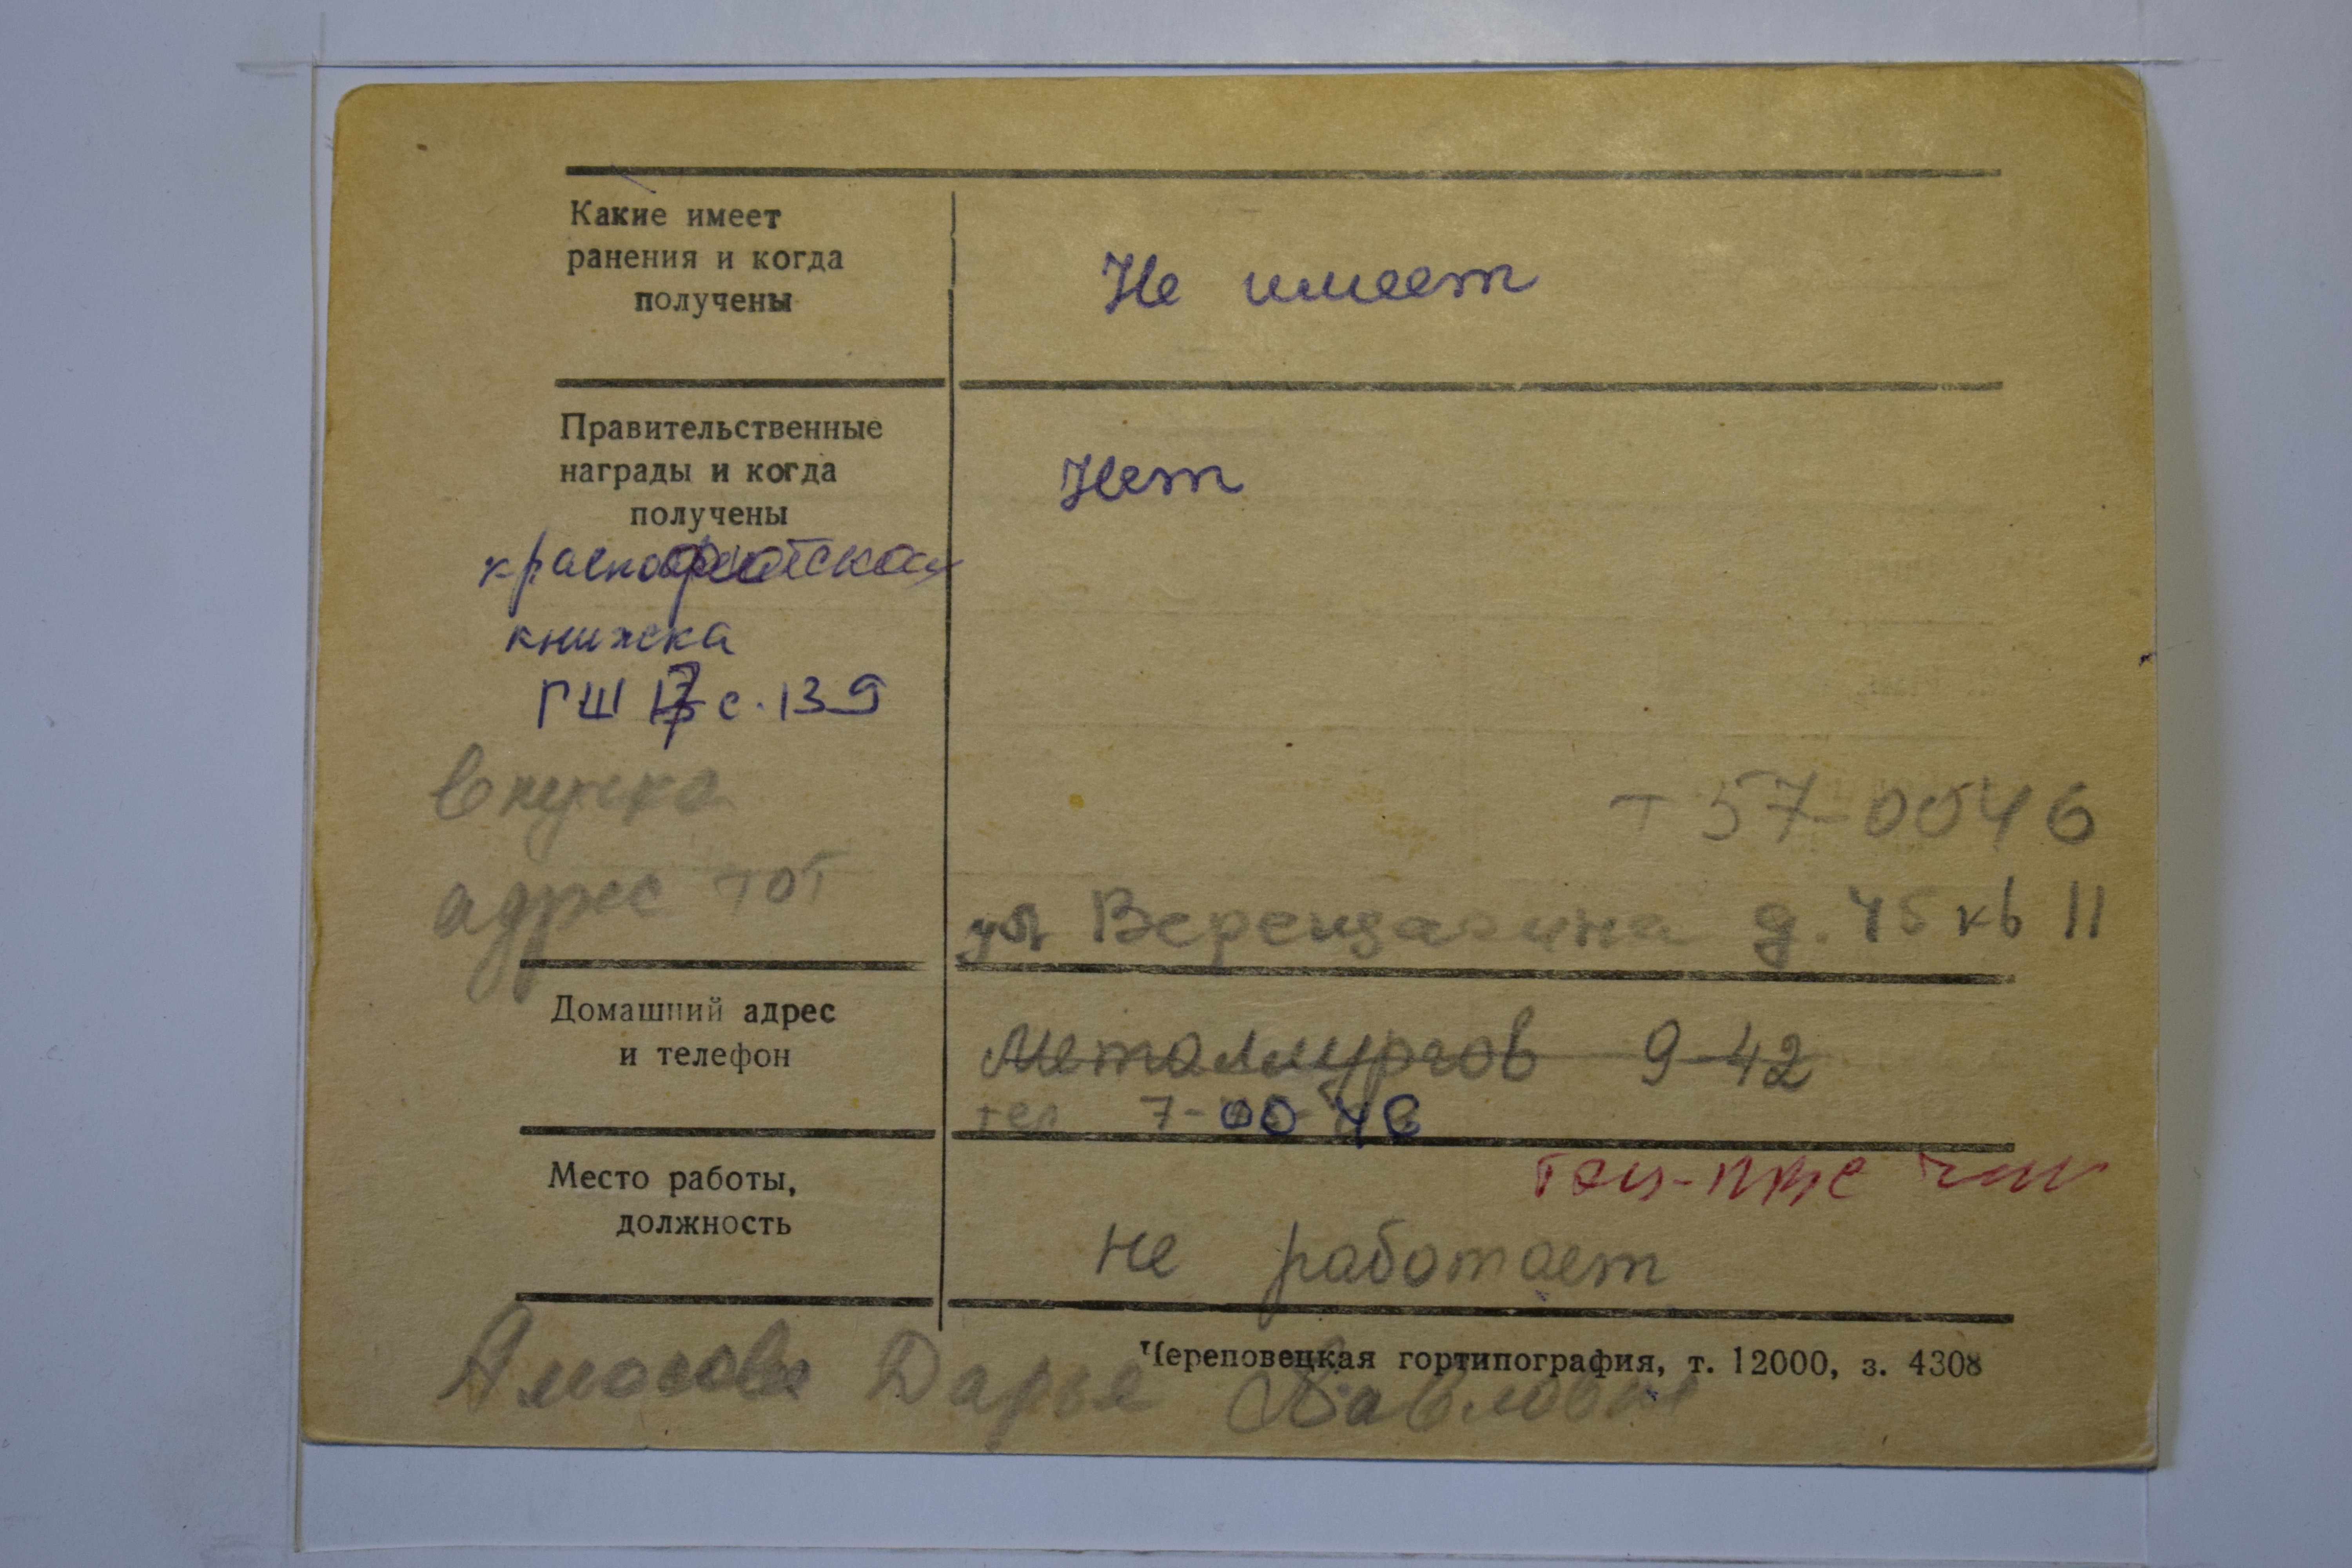 Какие имеет
ранения и когда
получены
Не имеет
Правительственные
награды и когда
получены
Нет
краснофлотская
книжка
ГШ с. 139
внучка
т 57-0046
адрес тот
ул Верещагина д. 45 кв 11
Домашний адрес
и телефон
Металлургов 9-42
тел 7-00 46
Место работы,
должность
не работает
Череповецкая гортипография, т. 12000, з. 4308
Амосова Дарья Павловна